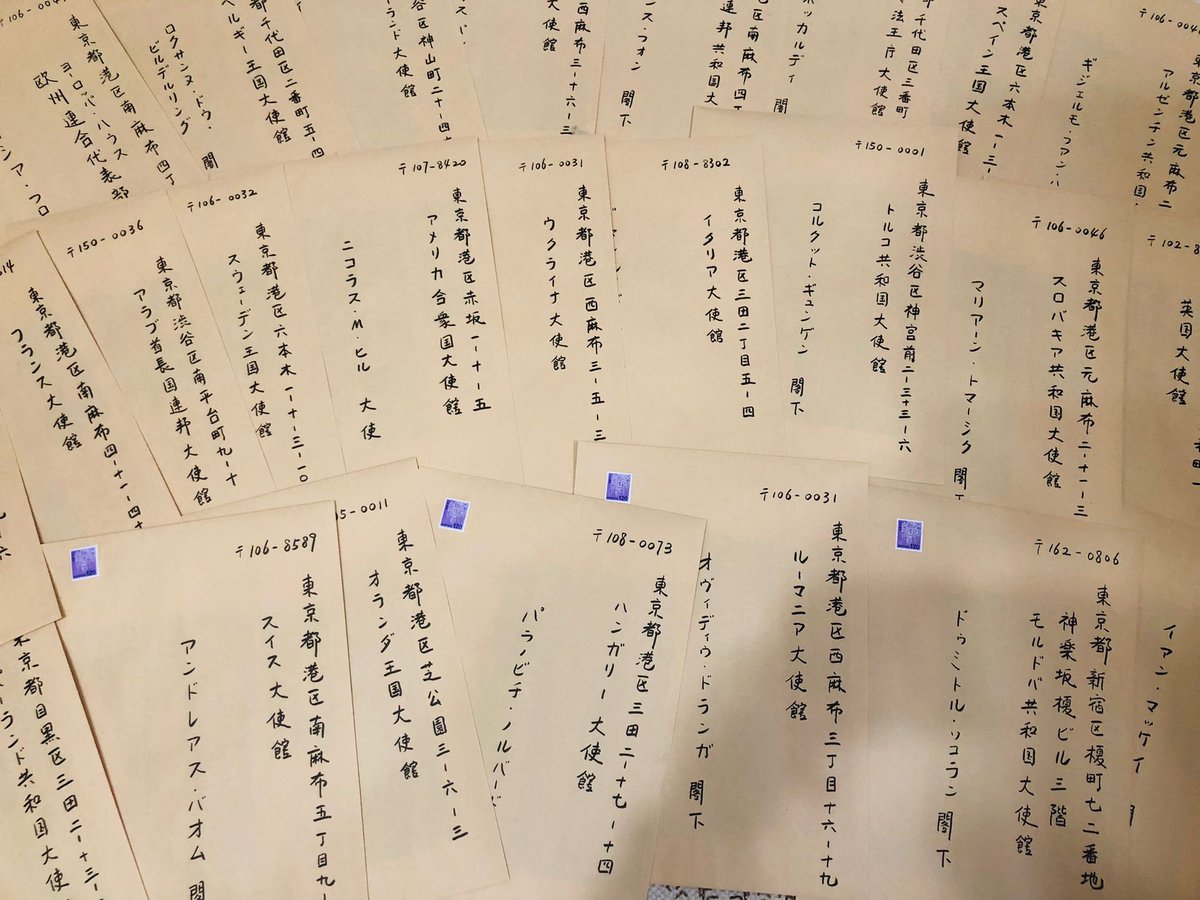 東京都港区南麻布四丁
ヨーロッパ・ハウス
欧州連合代表部
ロクサンヌ・ドゥ・
ビルデルリング 閣
千代田区二番町五-四
ベルギー王国大使館
谷区神山町二十-四
ランド大使館
西麻布三-十六-三
大使館
ンス・フォン 閣下
区南麻布四
連邦共和国大
ボッカルディ 閣
千代田区三番町
法王庁大使館
東京都港区六本木一-三-
スペイン王国大使館
〒106-004
東京都港区元麻布二
アルゼンチン共和国
ギジェルモ・フアン・ハ
東京都港区南麻布四-十一-四十
フランス大使館
〒150-0036
東京都渋谷区南平台町九-十
アラブ首長国連邦大使館
〒106-0032
東京都港区六本木一-十-三-一〇
スウェーデン王国大使館
〒107-8420
東京都港区赤坂一-十-五
アメリカ合衆国大使館
ニコラス・M・ヒル 大使
〒106-0031
東京都港区西麻布三-五-三
ウクライナ大使館
〒108-8302
東京都港区三田二丁目五-四
イタリア大使館
〒150-0001
東京都渋谷区神宮前二-三十三-六
トルコ共和国大使館
コルクット・ギュンゲン 閣下
〒106-0046
東京都港区元麻布二-十一-三
スロバキア共和国大使館
マリアーン・トマーシク 閣下
〒102-8
英国大使館
東京都目黒区三田二-十三-
ランド共和国大使
〒106-8589
東京都港区南麻布五丁目九-
スイス大使館
アンドレアス・バオム 閣
5-0011
東京都港区芝公園三-六-三
オランダ王国大使館
〒108-0073
東京都港区三田二-十七-十四
ハンガリー大使館
パラノビチ・ノルバート
〒106-0031
東京都港区西麻布三丁目十六-十九
ルーマニア大使館
オヴィディウ・ドランガ 閣下
〒162-0806
東京都新宿区榎町七二番地
神楽坂榎ビル三階
モルドバ共和国大使館
ドゥミトル・ソコラン 閣下
イアン・マッケイ